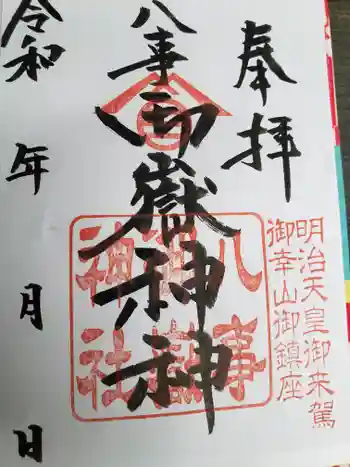 奉拝
明治天皇御来駕
御幸山御鎮座
八事
御嶽神社
八事
御嶽
神社
令和 年 月 日